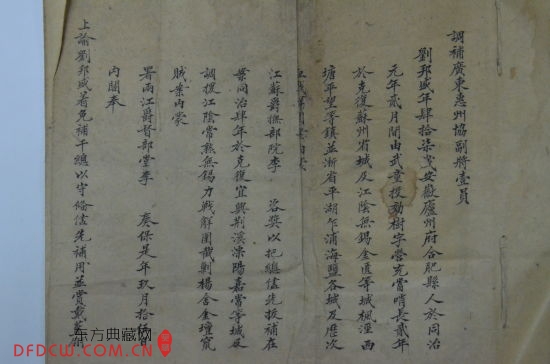 調補廣東惠州協副將壹員
劉邦盛年肆拾柒歲安徽廬州府合肥縣人於同治
元年貳月間由武童投効樹字營充當哨長貳年
於克復蘇州省城及江陰無錫金匱等城楓涇西
塘平望等鎮並浙省平湖乍浦海鹽各城及歷次
江蘇爵撫部院李 咨獎以把總儘先拔補在
案同治肆年於克復宜興荆溪溧陽嘉常等城及
調援江陰常熟無錫力戰解圍截剿楊舍金壇竄
賊案內蒙
署兩江爵督部堂李 奏保是年玖月拾
內閣奉
上諭劉邦盛著免補千總以守備儘先補用並賞戴藍翎
东方典藏网
DFDCW.COM.CN